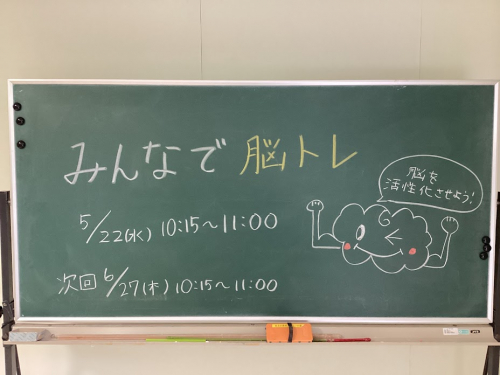 みんなで 脳トレ
5/22(水) 10:15～11:00
次回 6/27(木) 10:15～11:00
脳を
活性化させよう!